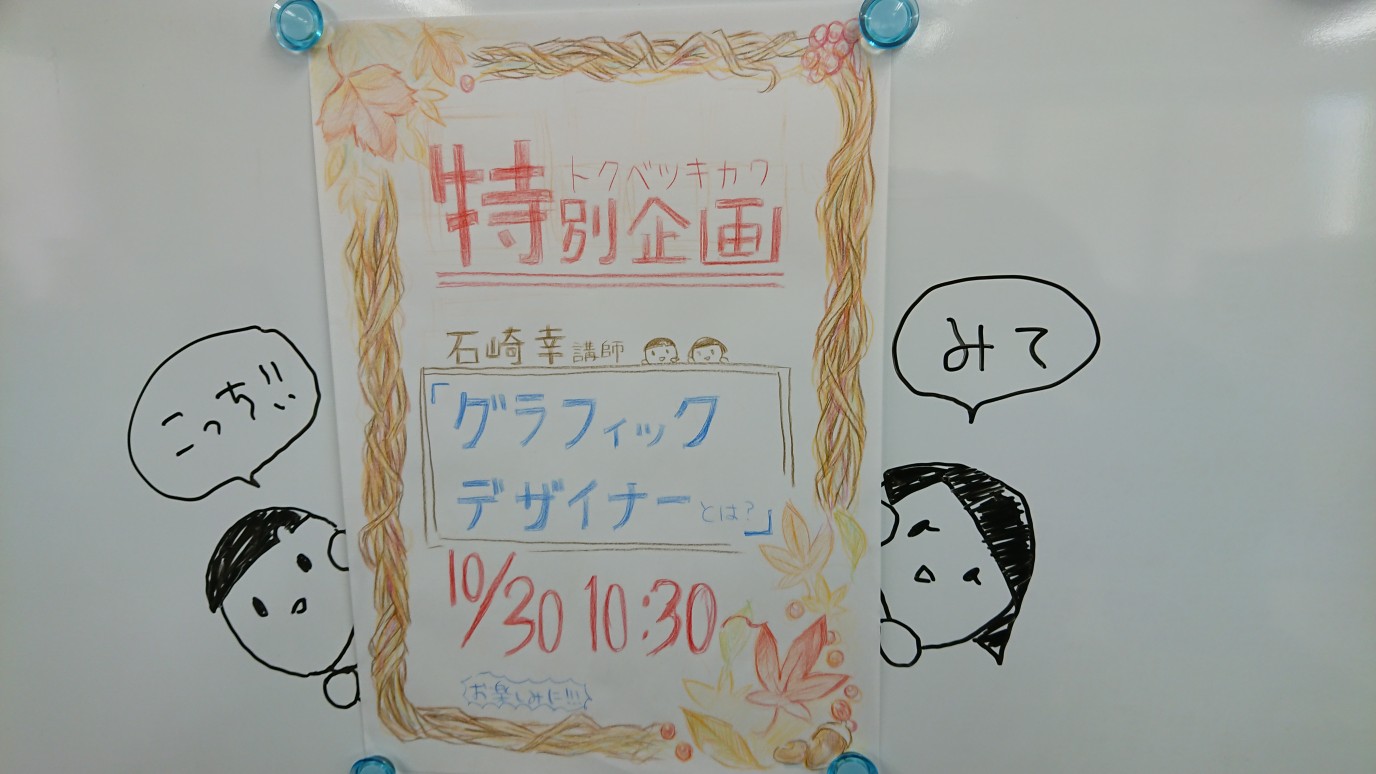 トクベツキカワ
特別企画
石崎幸講師
「グラフィック
デザイナーとは?」
10/30 10:30
お楽しみに!!!
こっち!!
みて